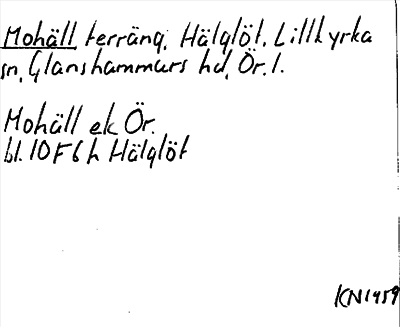 Mohäll terräng, Hälglöt, Lillkyrka
sn, Glanshammars hd, Ör. l.
Mohäll ek Ör.
bl. 10F6h Hälglöt
KN1959